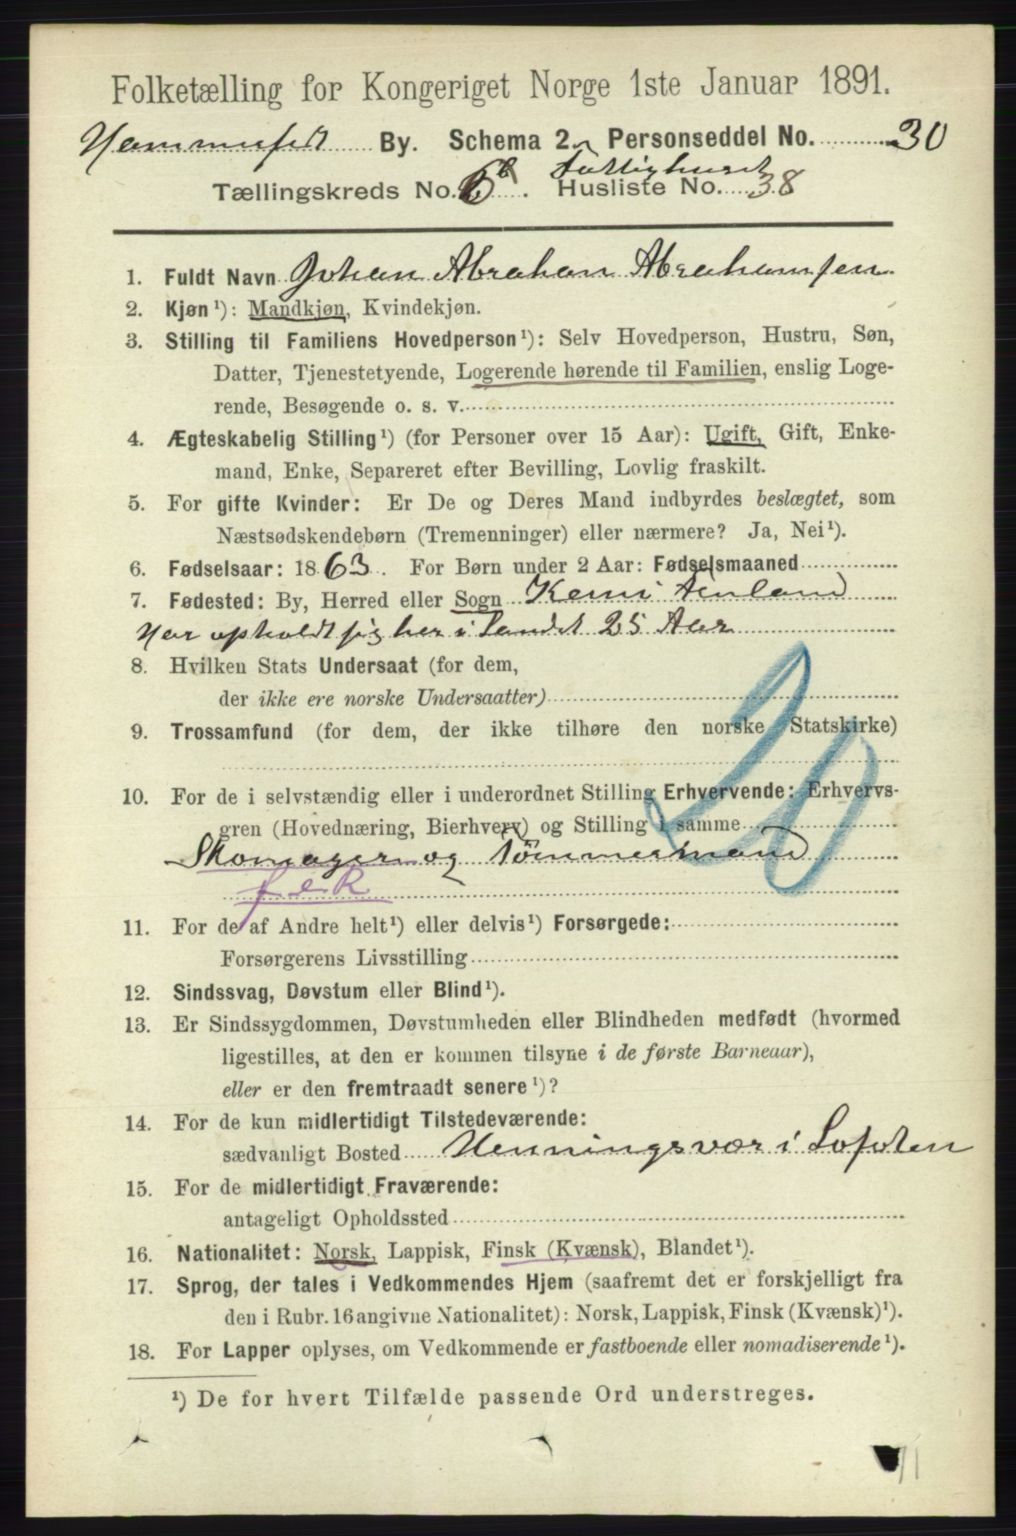 Folketælling for Kongeriget Norge 1ste Januar 1891.
Hammerfest By. Schema 2. Personseddel No. 30
Fattighuset
Tællingskreds No. 6 b. Husliste No. 38
1. Fuldt Navn Johan Abraham Abrahamsen
2. Kjøn¹): Mandkjøn, Kvindekjøn.
3. Stilling til Familiens Hovedperson¹): Selv Hovedperson, Hustru, Søn,
Datter, Tjenestetyende, Logerende hørende til Familien, enslig Loge-
rende, Besøgende o. s. v.
4. Ægteskabelig Stilling¹) (for Personer over 15 Aar): Ugift, Gift, Enke-
mand, Enke, Separeret efter Bevilling, Lovlig fraskilt.
5. For gifte Kvinder: Er De og Deres Mand indbyrdes beslægtet, som
Næstsødskendebørn (Tremenninger) eller nærmere? Ja, Nei¹).
6. Fødselsaar: 1863. For Børn under 2 Aar: Fødselsmaaned
7. Fødested: By, Herred eller Sogn Kemi Finland
Har opholdt sig her i Landet 25 Aar
8. Hvilken Stats Undersaat (for dem,
der ikke ere norske Undersaatter)
9. Trossamfund (for dem, der ikke tilhøre den norske Statskirke)
20
10. For de i selvstændig eller i underordnet Stilling Erhvervende: Erhvervs-
gren (Hovednæring, Bierhverv) og Stilling i samme
Skomager og Tømmermand
11. For de af Andre helt¹) eller delvis¹) Forsørgede:
Forsørgerens Livsstilling
12. Sindssvag, Døvstum eller Blind¹).
13. Er Sindssygdommen, Døvstumheden eller Blindheden medfødt (hvormed
ligestilles, at den er kommen tilsyne i de første Barneaar),
eller er den fremtraadt senere¹)?
14. For de kun midlertidigt Tilstedeværende:
sædvanligt Bosted Henningsvær i Lofoten
15. For de midlertidigt Fraværende:
antageligt Opholdssted
16. Nationalitet: Norsk, Lappisk, Finsk (Kvænsk), Blandet¹).
17. Sprog, der tales i Vedkommendes Hjem (saafremt det er forskjelligt fra
den i Rubr. 16 angivne Nationalitet): Norsk, Lappisk, Finsk (Kvænsk)¹).
18. For Lapper oplyses, om Vedkommende er fastboende eller nomadiserende¹).
¹) De for hvert Tilfælde passende Ord understreges.